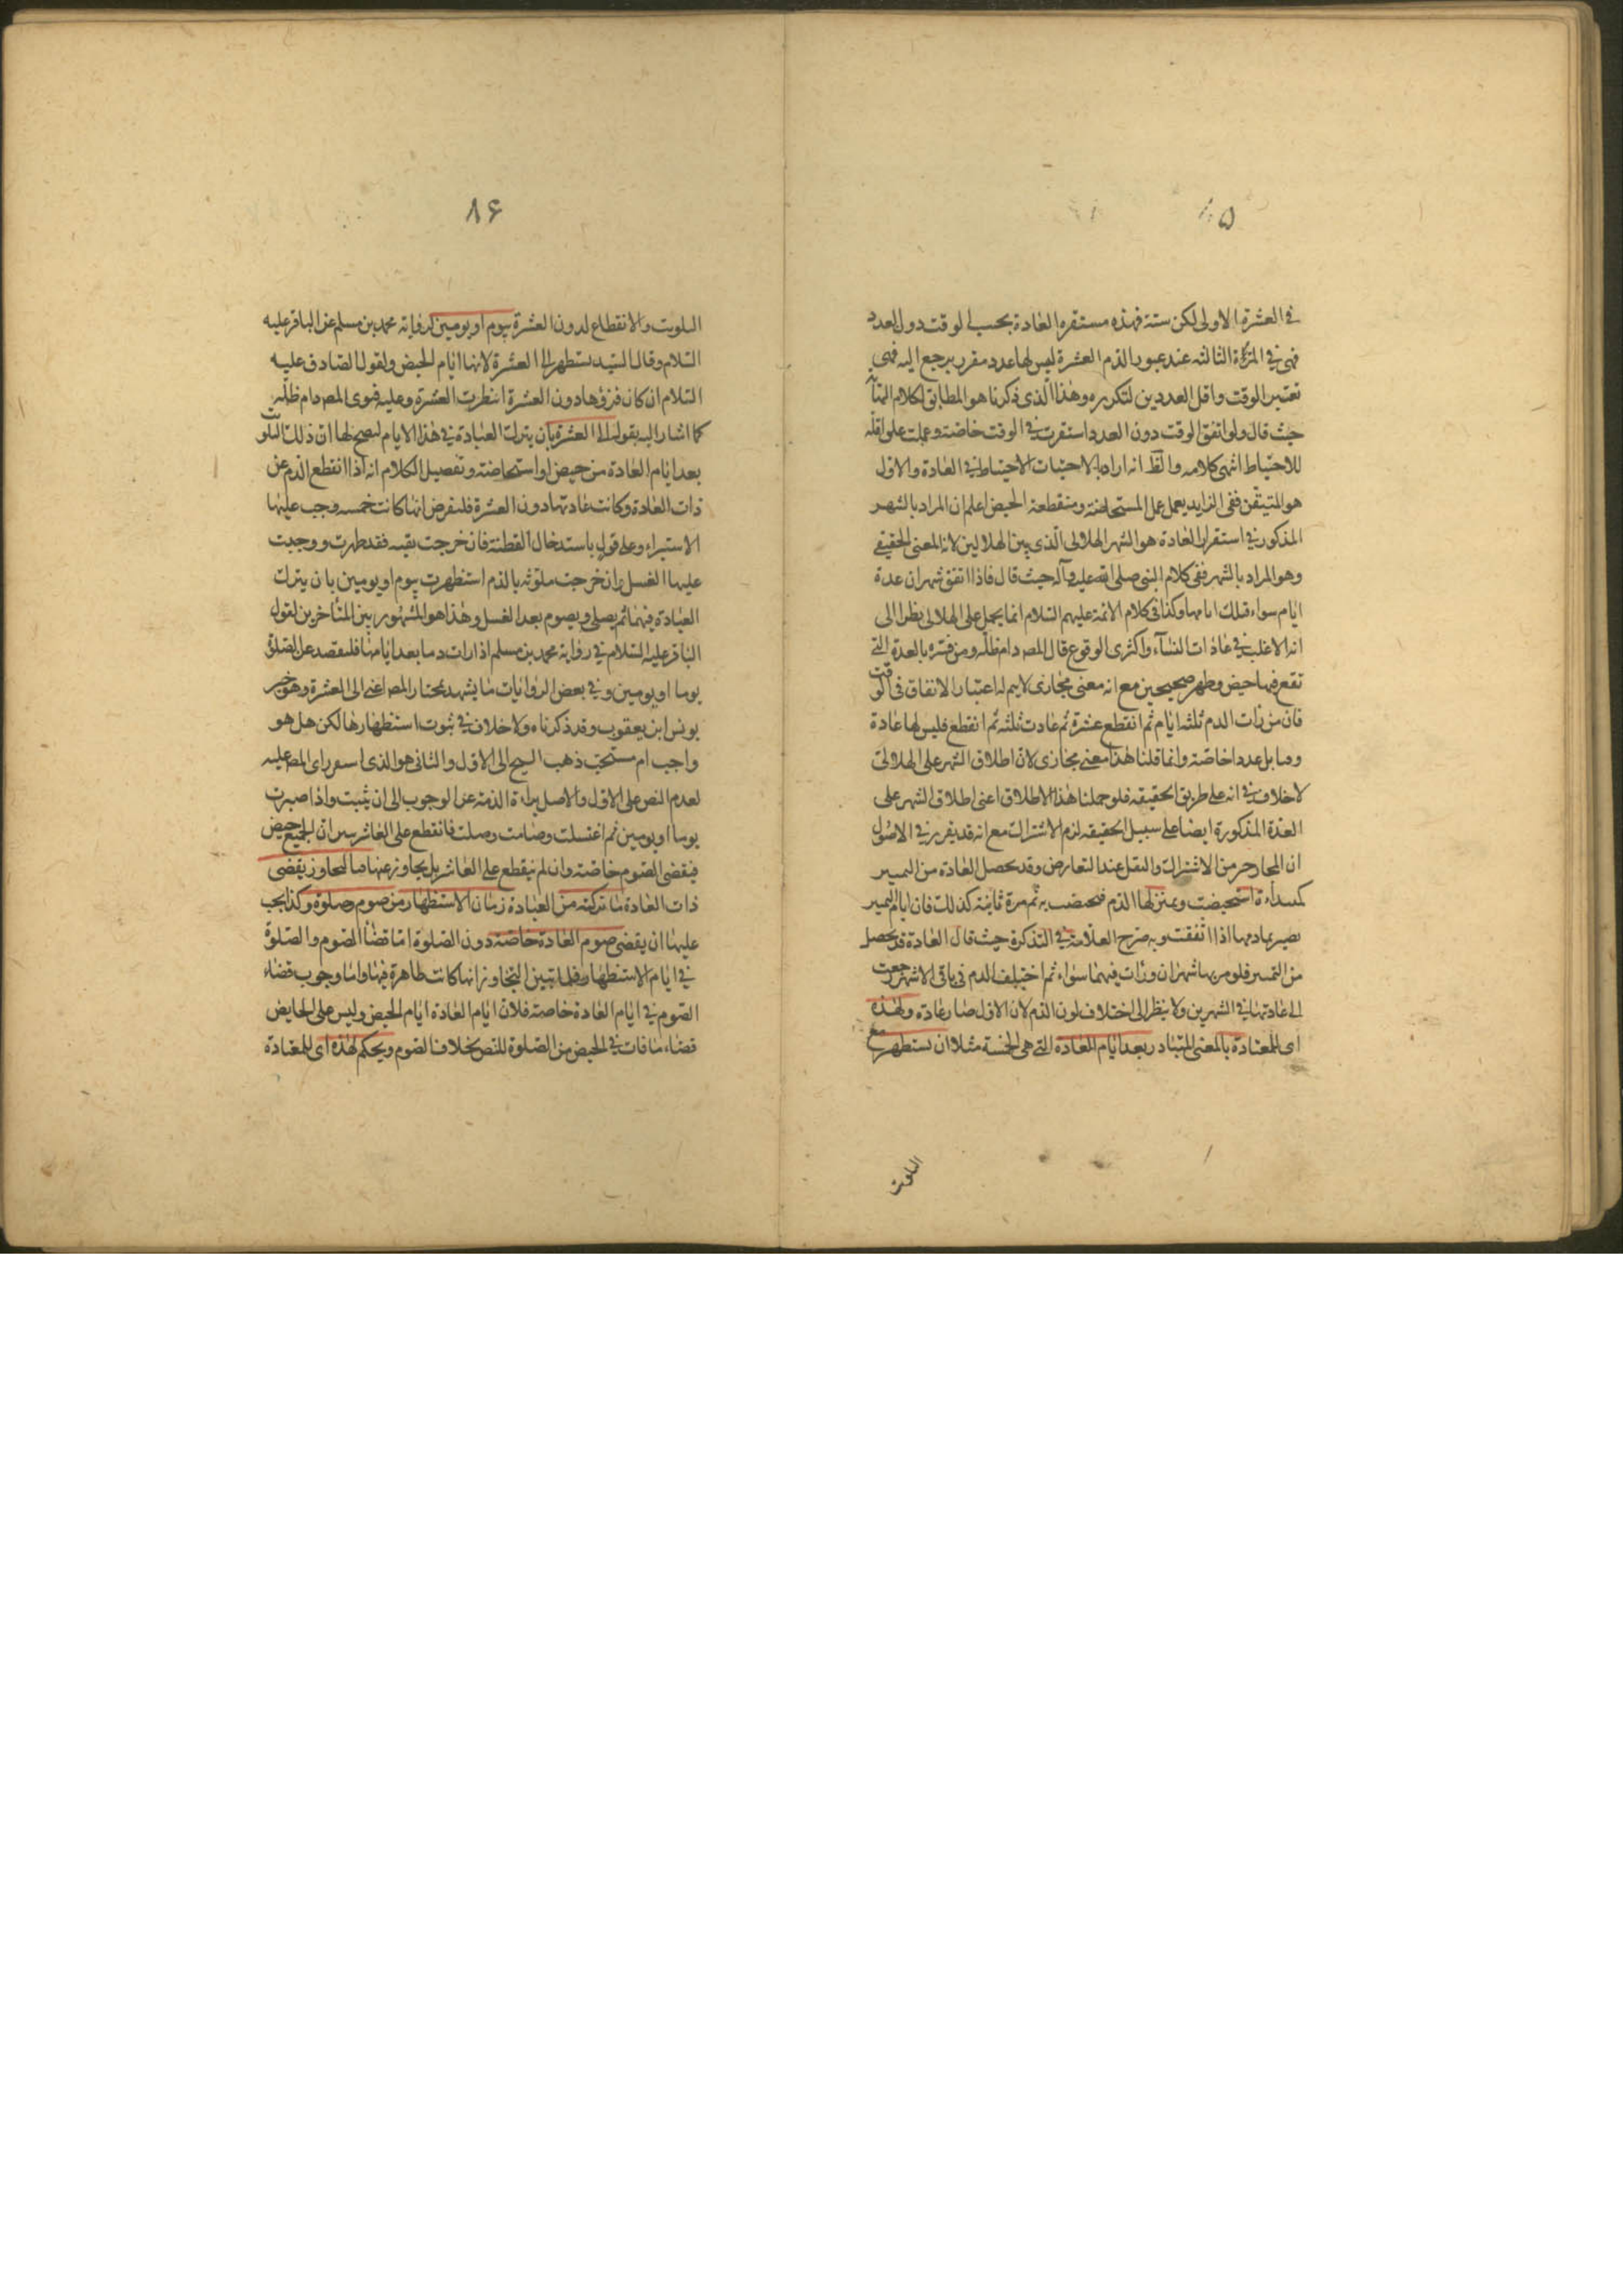 ٨۵
في العشرة الاولى لكن ستة فهذه مستقرة العادة بحسب الوقت دون العدد
فهي في المرة الثالثة عند عبور الدم العشرة ليس لها عدد مقرر يرجع اليه فهي
تعتبر الوقت واقل العددين لتكرره وهذا الذي ذكرنا هو المطابق لكلام
حيث قال ولو اتفق الوقت دون العدد استقرت في الوقت خاصة وعملت على اقله
للاحتياط انتهى كلامه والظ انه اراد بالاحتياط الاحتياط في العادة والاول
هو المتيقن ففي الزايد يعمل عمل المستحاضة ومنقطعة الحيض اعلم ان المراد بالشهر
المذكور في استقرار العادة هو الشهر الهلالي الذي بين الهلالين لانه المعنى الحقيقي
وهو المراد بالشهر ففي كلام النبي صلى الله عليه وآله حيث قال فاذا اتفق شهران عدة
ايام سواء فتلك ايامها وكذا في كلام الائمة عليهم السلام انما يحمل على الهلالي نظرا الى
انه الاغلب في عادات النسآء واكثرى الوقوع قال المص دام ظله ومن فسره بالعدة التي
تقع فيها حيض وطهر صحيحين مع انه معنى مجازى لا يتم له اعتبار الاتفاق في الوقت
فان من رات الدم ثلثة ايام ثم انقطع عشرة ثم عادت ثلثة ثم انقطع فليس لها عادة
وقتا بل عددا خاصة وانما قلنا هذا معنى مجازى لان اطلاق الشهر على الهلالى
لا خلاف في انه على طريق الحقيقة فلو حملنا هذا الاطلاق اعنى اطلاق الشهر على
العدة المذكورة ايضا على سبيل الحقيقة لزم الاشتراك مع انه قد يقرر في الاصول
ان المجاز خير من الاشتراك والنقل عند التعارض وقد يحصل العادة من التمييز
كمبتداءة استحيضت ويتميز لها الدم فتحيضت به ثم مرة ثانية كذلك فان ايام التمييز
يصير عادتها اذا اتفقت وبه صرح العلامة في التذكرة حيث قال العادة قد يحصل
من التمييز فلو مر بها شهران ورات فيهما سواء ثم اختلف الدم في باقي الاشهر رجعت
الى عادتها في الشهرين ولا ينظر الى اختلاف لون الدم لان الاول صار عادة ولهذه
اى للمعتادة بالمعنى المتبادر بعد ايام العادة التي هي الخمسة مثلا ان تستظهر مع
التلوث
٨۶
التلوث والانقطاع لدون العشرة بيوم او يومين لرواية محمد بن مسلم عن الباقر عليه
السلام وقال السيد يستظهر الى العشرة لانها ايام الحيض ولقول الصادق عليه
السلام ان كان قرؤها دون العشرة انتظرت العشرة وعليه فتوى المص دام ظله
كما اشار اليه بقوله الى العشرة بان يترك العبادة في هذا الايام ليصح لها ان ذلك التلوث
بعد ايام العادة من حيض او استحاضة وتفصيل الكلام انه اذا انقطع الدم عن
ذات العادة وكانت عادتها دون العشرة فلنفرض انها كانت خمسة وجب عليها
الاستبراء وعلى قول باستدخال القطنة فان خرجت نقية فقد طهرت ووجبت
عليها الغسل وان خرجت ملوثة بالدم استظهرت بيوم او يومين بان يترك
العبادة فيهما ثم يصلى ويصوم بعد الغسل وهذا هو المشهور بين المتأخرين لقول
الباقر عليه السلام في رواية محمد بن مسلم اذا رات دما بعد ايامها فلتقعد عن الصلوة
يوما او يومين وفي بعض الروايات ما يشهد بمختار المص اعنى الى العشرة وهو خبر
يونس ابن يعقوب وقد ذكرناه ولا خلاف في ثبوت استظهارها لكن هل هو
واجب ام مستحب ذهب الشيخ الى الاول والثانى هو الذى استقر راى المص عليه
لعدم النص على الاول والاصل براءة الذمة عن الوجوب الى ان يثبت واذا صبرت
يوما او يومين ثم اغتسلت وصامت وصلت فانقطع على العاشر تبين ان الجميع حيض
فيقضى الصوم خاصة وان لم ينقطع على العاشر بل يجاوز عنها فبالتجاوز يقضى
ذات العادة ما تركته من العبادة زمان الاستظهار من صوم وصلوة وكذا يجب
عليها ان يقضى صوم العادة خاصة دون الصلوة اما قضآء الصوم والصلوة
في ايام الاستظهار فلما تبين التجاوز انها كانت طاهرة فيها واما وجوب قضاء
الصوم في ايام العادة خاصة فلان ايام العادة ايام الحيض وليس على الحايض
قضاء ما فات في الحيض من الصلوة للنص بخلاف الصوم ويحكم لهذه اى للمعتادة